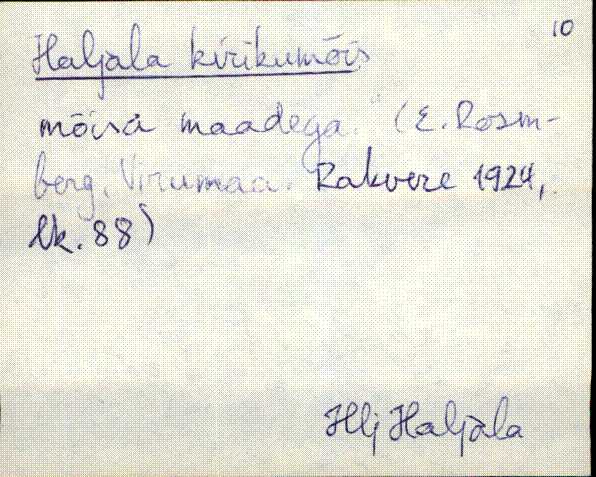 10
Haljala kirikumõis
mõisa maadega." (E. Rosen-
berg. Virumaa. Rakvere 1924,
lk. 88)
Hlj Haljala